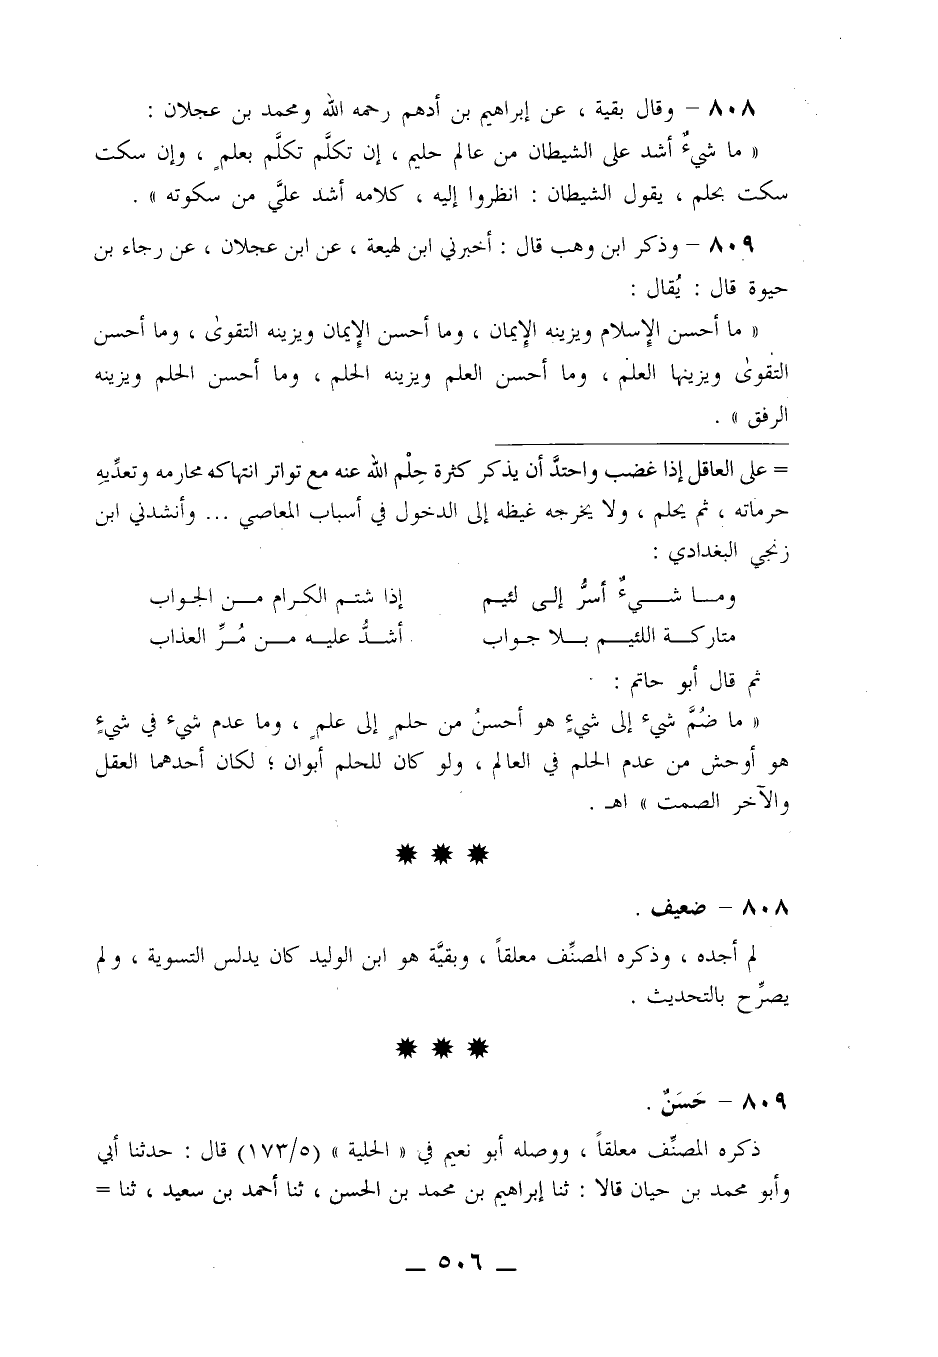 ٨٠٨ – وقال بقية ، عن إبراهيم بن أدهم رحمه الله ومحمد بن عجلان :
« ما شيءٌ أشد على الشيطان من عالم حليم ، إن تكلَّم تكلَّم بعلمٍ ، وإن سكت
سكت بحلم ، يقول الشيطان : انظروا إليه ، كلامه أشد عليَّ من سكوته » .
٨٠٩ – وذكر ابن وهب قال : أخبرني ابن لهيعة ، عن ابن عجلان ، عن رجاء بن
حيوة قال : يُقال :
« ما أحسن الإسلام ويزينه الإيمان ، وما أحسن الإيمان ويزينه التقوىٰ ، وما أحسن
التقوىٰ ويزينها العلم ، وما أحسن العلم ويزينه الحلم ، وما أحسن الحلم ويزينه
الرفق » .
= على العاقل إذا غضب واحتدَّ أن يذكر كثرة حِلْم الله عنه مع تواتر انتهاكه محارمه وتعدِّيهِ
حرماته ، ثم يحلم ، ولا يخرجه غيظه إلى الدخول في أسباب المعاصي ... وأنشدني ابن
زنجي البغدادي :
ومـا شــيءٌ أسرُّ إلـى لئيـم إذا شتـم الكـرام مـن الجـواب
متاركـة اللئيـم بـلا جـواب أشـدُّ عليـه مـن مُـرِّ العذاب
ثم قال أبو حاتم :
« ما ضُمَّ شيء إلى شيءٍ هو أحسنُ من حلمٍ إلى علمٍ ، وما عدم شيء في شيءٍ
هو أوحش من عدم الحلم في العالم ، ولو كان للحلم أبوان ؛ لكان أحدهما العقل
والآخر الصمت » اهـ .
٨٠٨ – ضعيف .
لم أجده ، وذكره المصنِّف معلقاً ، وبقيَّة هو ابن الوليد كان يدلس التسوية ، ولم
يصرِّح بالتحديث .
٨٠٩ – حَسَنٌ .
ذكره المصنِّف معلقاً ، ووصله أبو نعيم في « الحلية » (١٧٣/٥) قال : حدثنا أبي
وأبو محمد بن حيان قالا : ثنا إبراهيم بن محمد بن الحسن ، ثنا أحمد بن سعيد ، ثنا =
— ٥٠٦ —